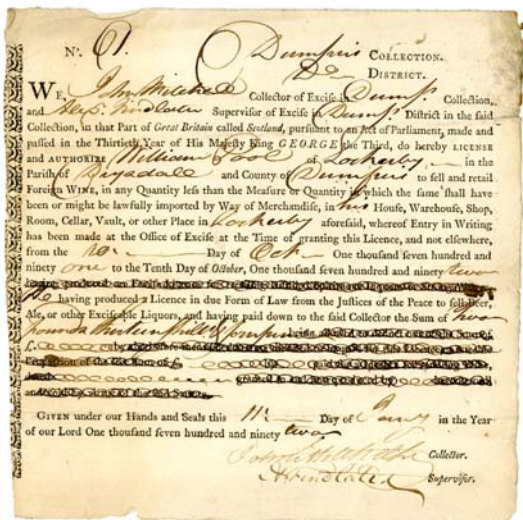 Nº. 61. Dumfries COLLECTION.
Do DISTRICT.
WE, John Mitchell Collector of Excise in Dumfs. Collection,
and Alexr. Findlater Supervisor of Excise in Dumfs. District in the said
Collection, in that Part of Great Britain called Scotland, pursuant to an Act of Parliament, made and
passed in the Thirtieth Year of His Majesty King GEORGE the Third, do hereby LICENSE
and AUTHORIZE William of Lockerby in the
Parish of Drysdale and County of Dumfries to sell and retail
Foreign WINE, in any Quantity less than the Measure or Quantity in which the same shall have
been or might be lawfully imported by Way of Merchandise, in his House, Warehouse, Shop,
Room, Cellar, Vault, or other Place in Lockerby aforesaid, whereof Entry in Writing
has been made at the Office of Excise at the Time of granting this Licence, and not elsewhere,
from the 10 Day of Octr One thousand seven hundred and
ninety one to the Tenth Day of October, One thousand seven hundred and ninety two
He having produced a Licence in due Form of Law from the Justices of the Peace to sell Beer,
Ale, or other Exciseable Liquors, and having paid down to the said Collector the Sum of two
pounds thirteen Shill
GIVEN under our Hands and Seals this 11 Day of Jany in the Year
of our Lord One thousand seven hundred and ninety two
John Mitchell Collector.
A Findlater Supervisor.